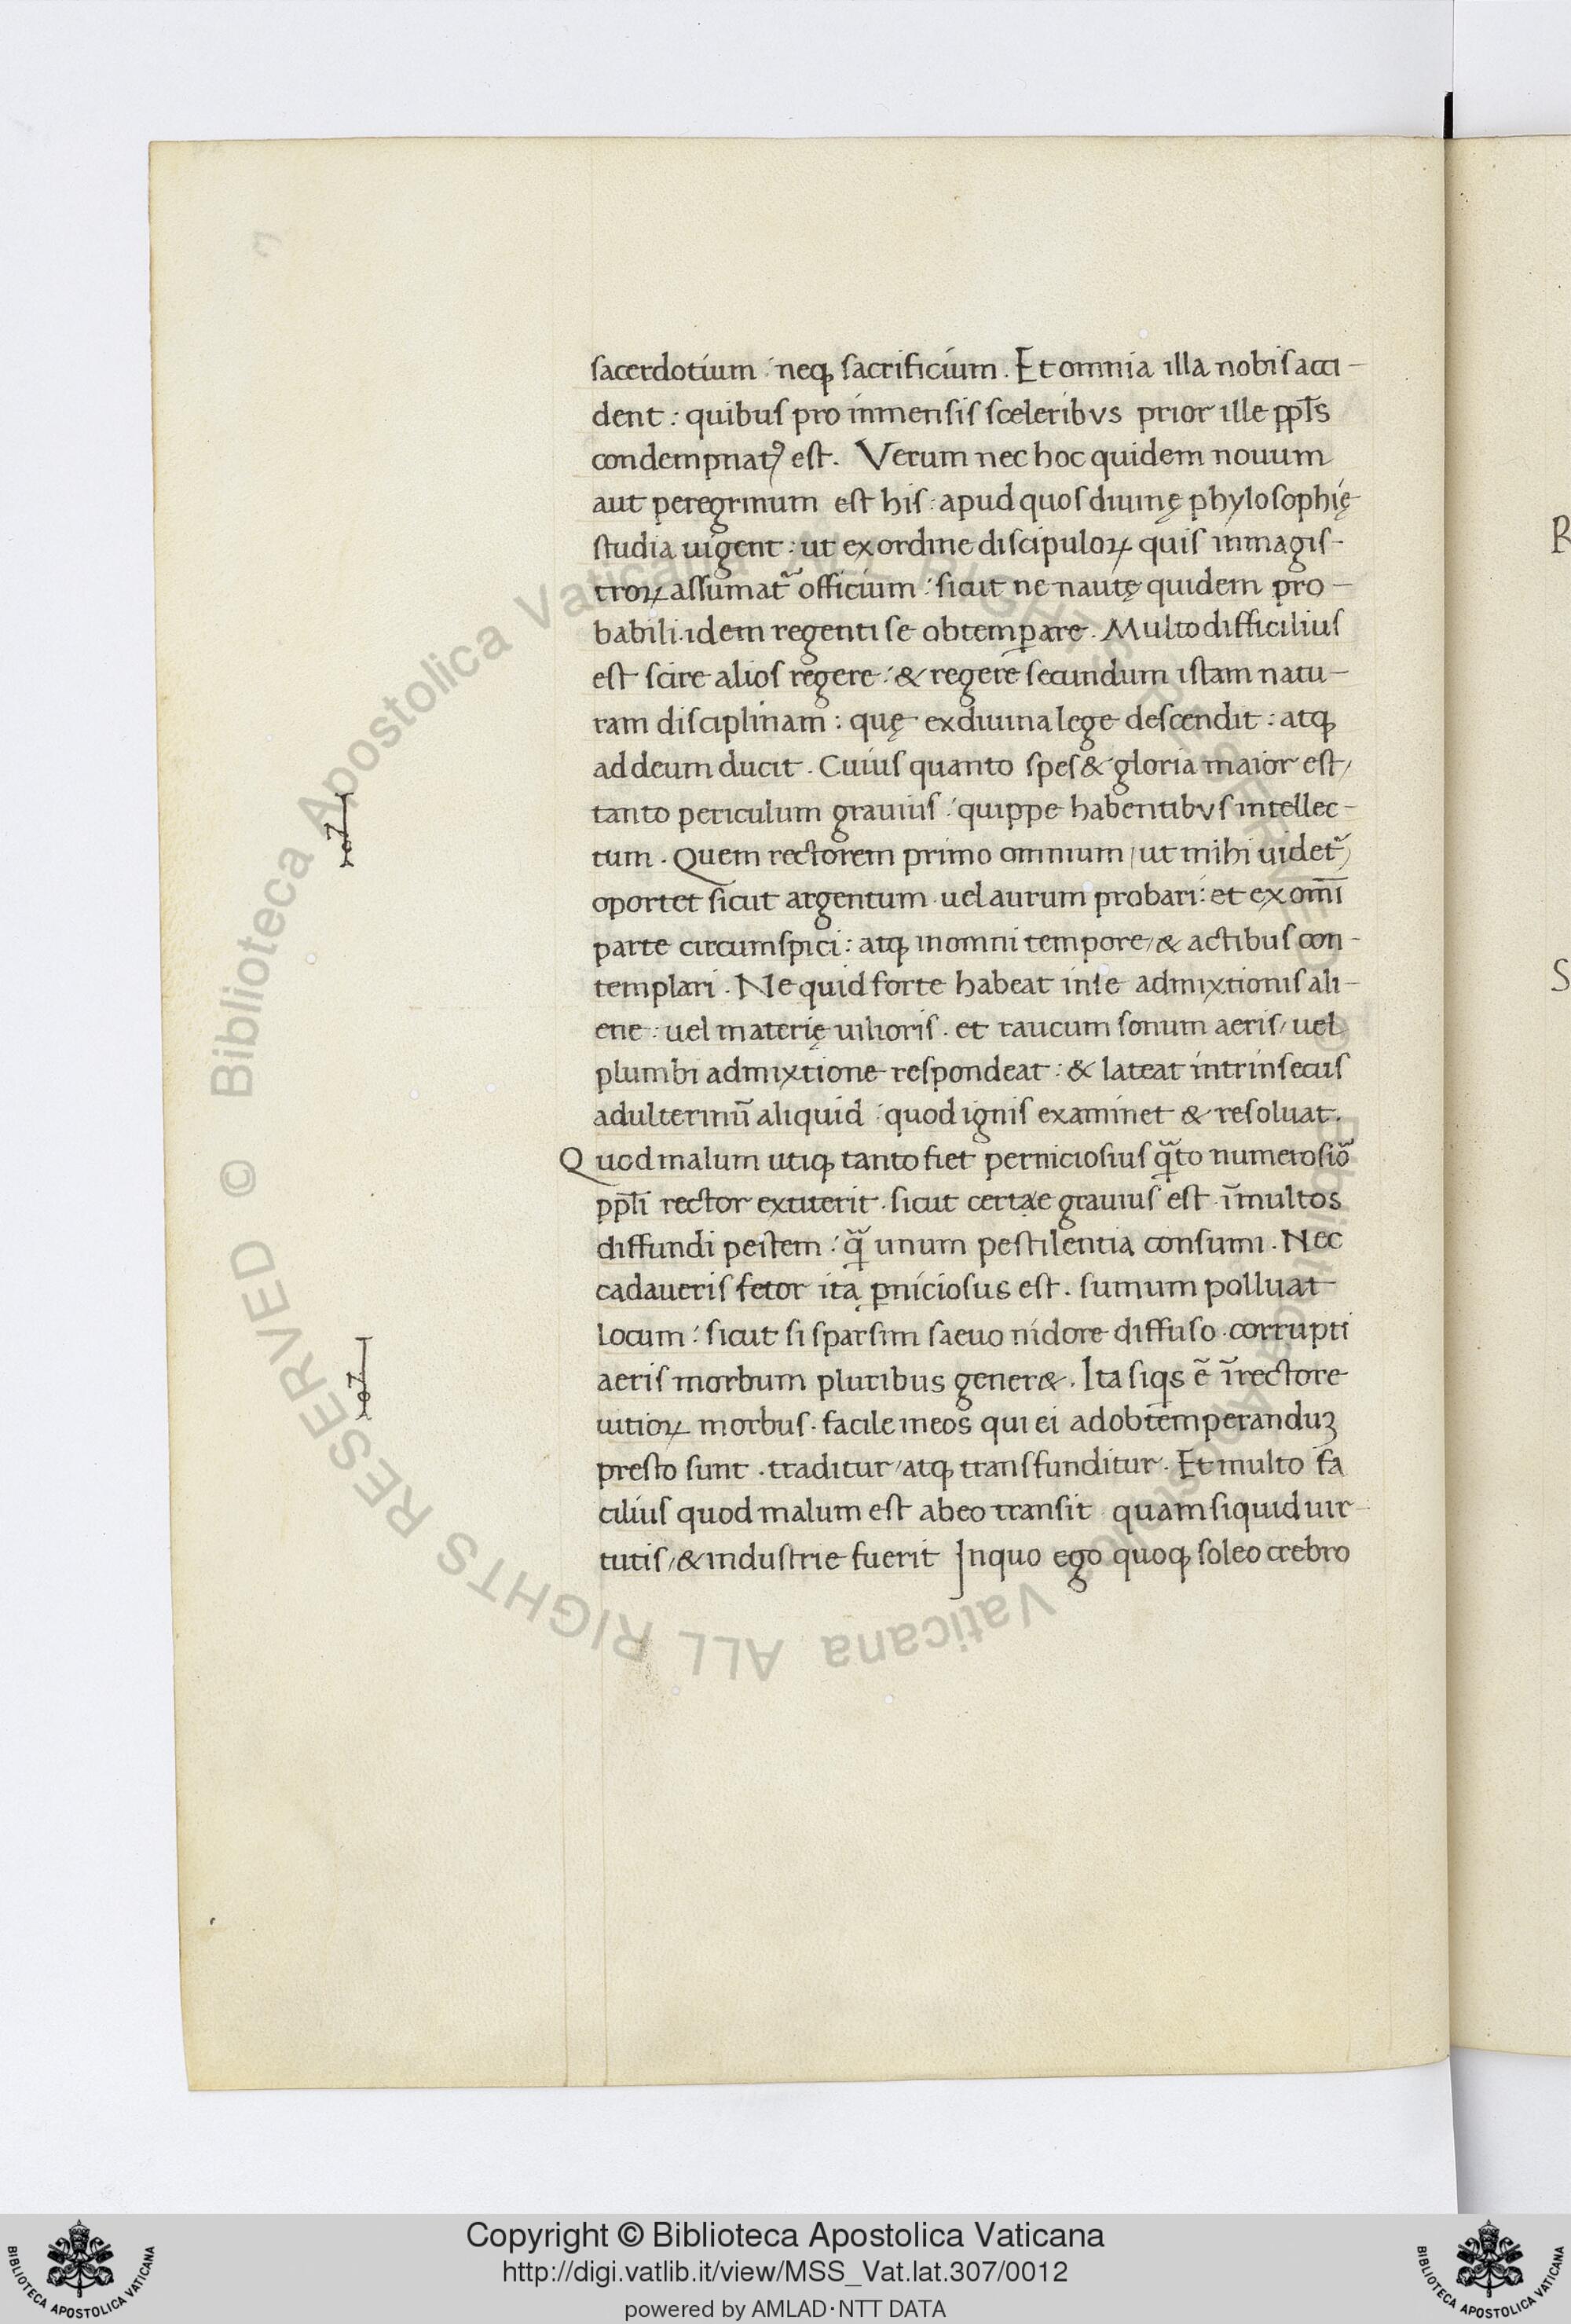 sacerdotium : neqꝫ sacrificium . Et omnia illa nobis acci-
dent : quibus pro inmensis sceleribvs prior ille ppl̅s
condempnatꝰ est . Verum nec hoc quidem nouum
aut peregrinum est his : apud quos diuinę phylosophię
studia uigent : ut ex ordine discipuloꝝ quis in magis-
troꝝ assumat᷑ officium : sicut ne nautę quidem pro-
babili . idem regenti se obtemꝑare . Multo difficilius
est scire alios regere : & regere secundum istam natu-
ram disciplinam : quę ex diuina lege descendit : atqꝫ
ad deum ducit . Cuius quanto spes & gloria maior est /
tanto periculum grauius : quippe habentibvs intellec-
tum . Quem rectorem primo omnium / ut mihi uidet᷑ /
oportet sicut argentum uel aurum probari : et ex om̅i
parte circumspici : atqꝫ in omni tempore / & actibus con-
templari . Ne quid forte habeat in se admixtionis ali-
ene : uel materię uilioris . et raucum sonum aeris / uel
plumbi admixtione respondeat : & lateat intrinsecus
adulterinu̅ aliquid : quod ignis examinet & resoluat .
Quod malum utiqꝫ tanto fiet perniciosius qᷓto numerosio᷑
ppl̅i rector extiterit . sicut certae grauius est i̅ multos
diffundi pestem : qᷓ unum pestilentia consumi . Nec
cadaueris fetor ita ꝑniciosus est . si unum polluat
locum : sicut si sparsim saeuo nidore diffuso . corrupti
aeris morbum pluribus gener& . Ita siqͥs e̅ i̅ rectore
uitioꝝ morbus . facile in eos qui ei ad obtemperanduꝫ
presto sunt . traditur / atqꝫ transfunditur . Et multo fa
cilius quod malum est ab eo transit quam siquid uir-
tutis / & industrie fuerit In quo ego quoqꝫ soleo crebro
R
S
Copyright © Biblioteca Apostolica Vaticana
http://digi.vatlib.it/view/MSS_Vat.lat.307/0012
powered by AMLAD·NTT DATA
BIBLIOTECA APOSTOLICA VATICANA
BIBLIOTECA APOSTOLICA VATICANA
© Biblioteca Apostolica Vaticana ALL RIGHTS RESERVED © Biblioteca Apostolica Vaticana ALL RIGHTS RESERVED